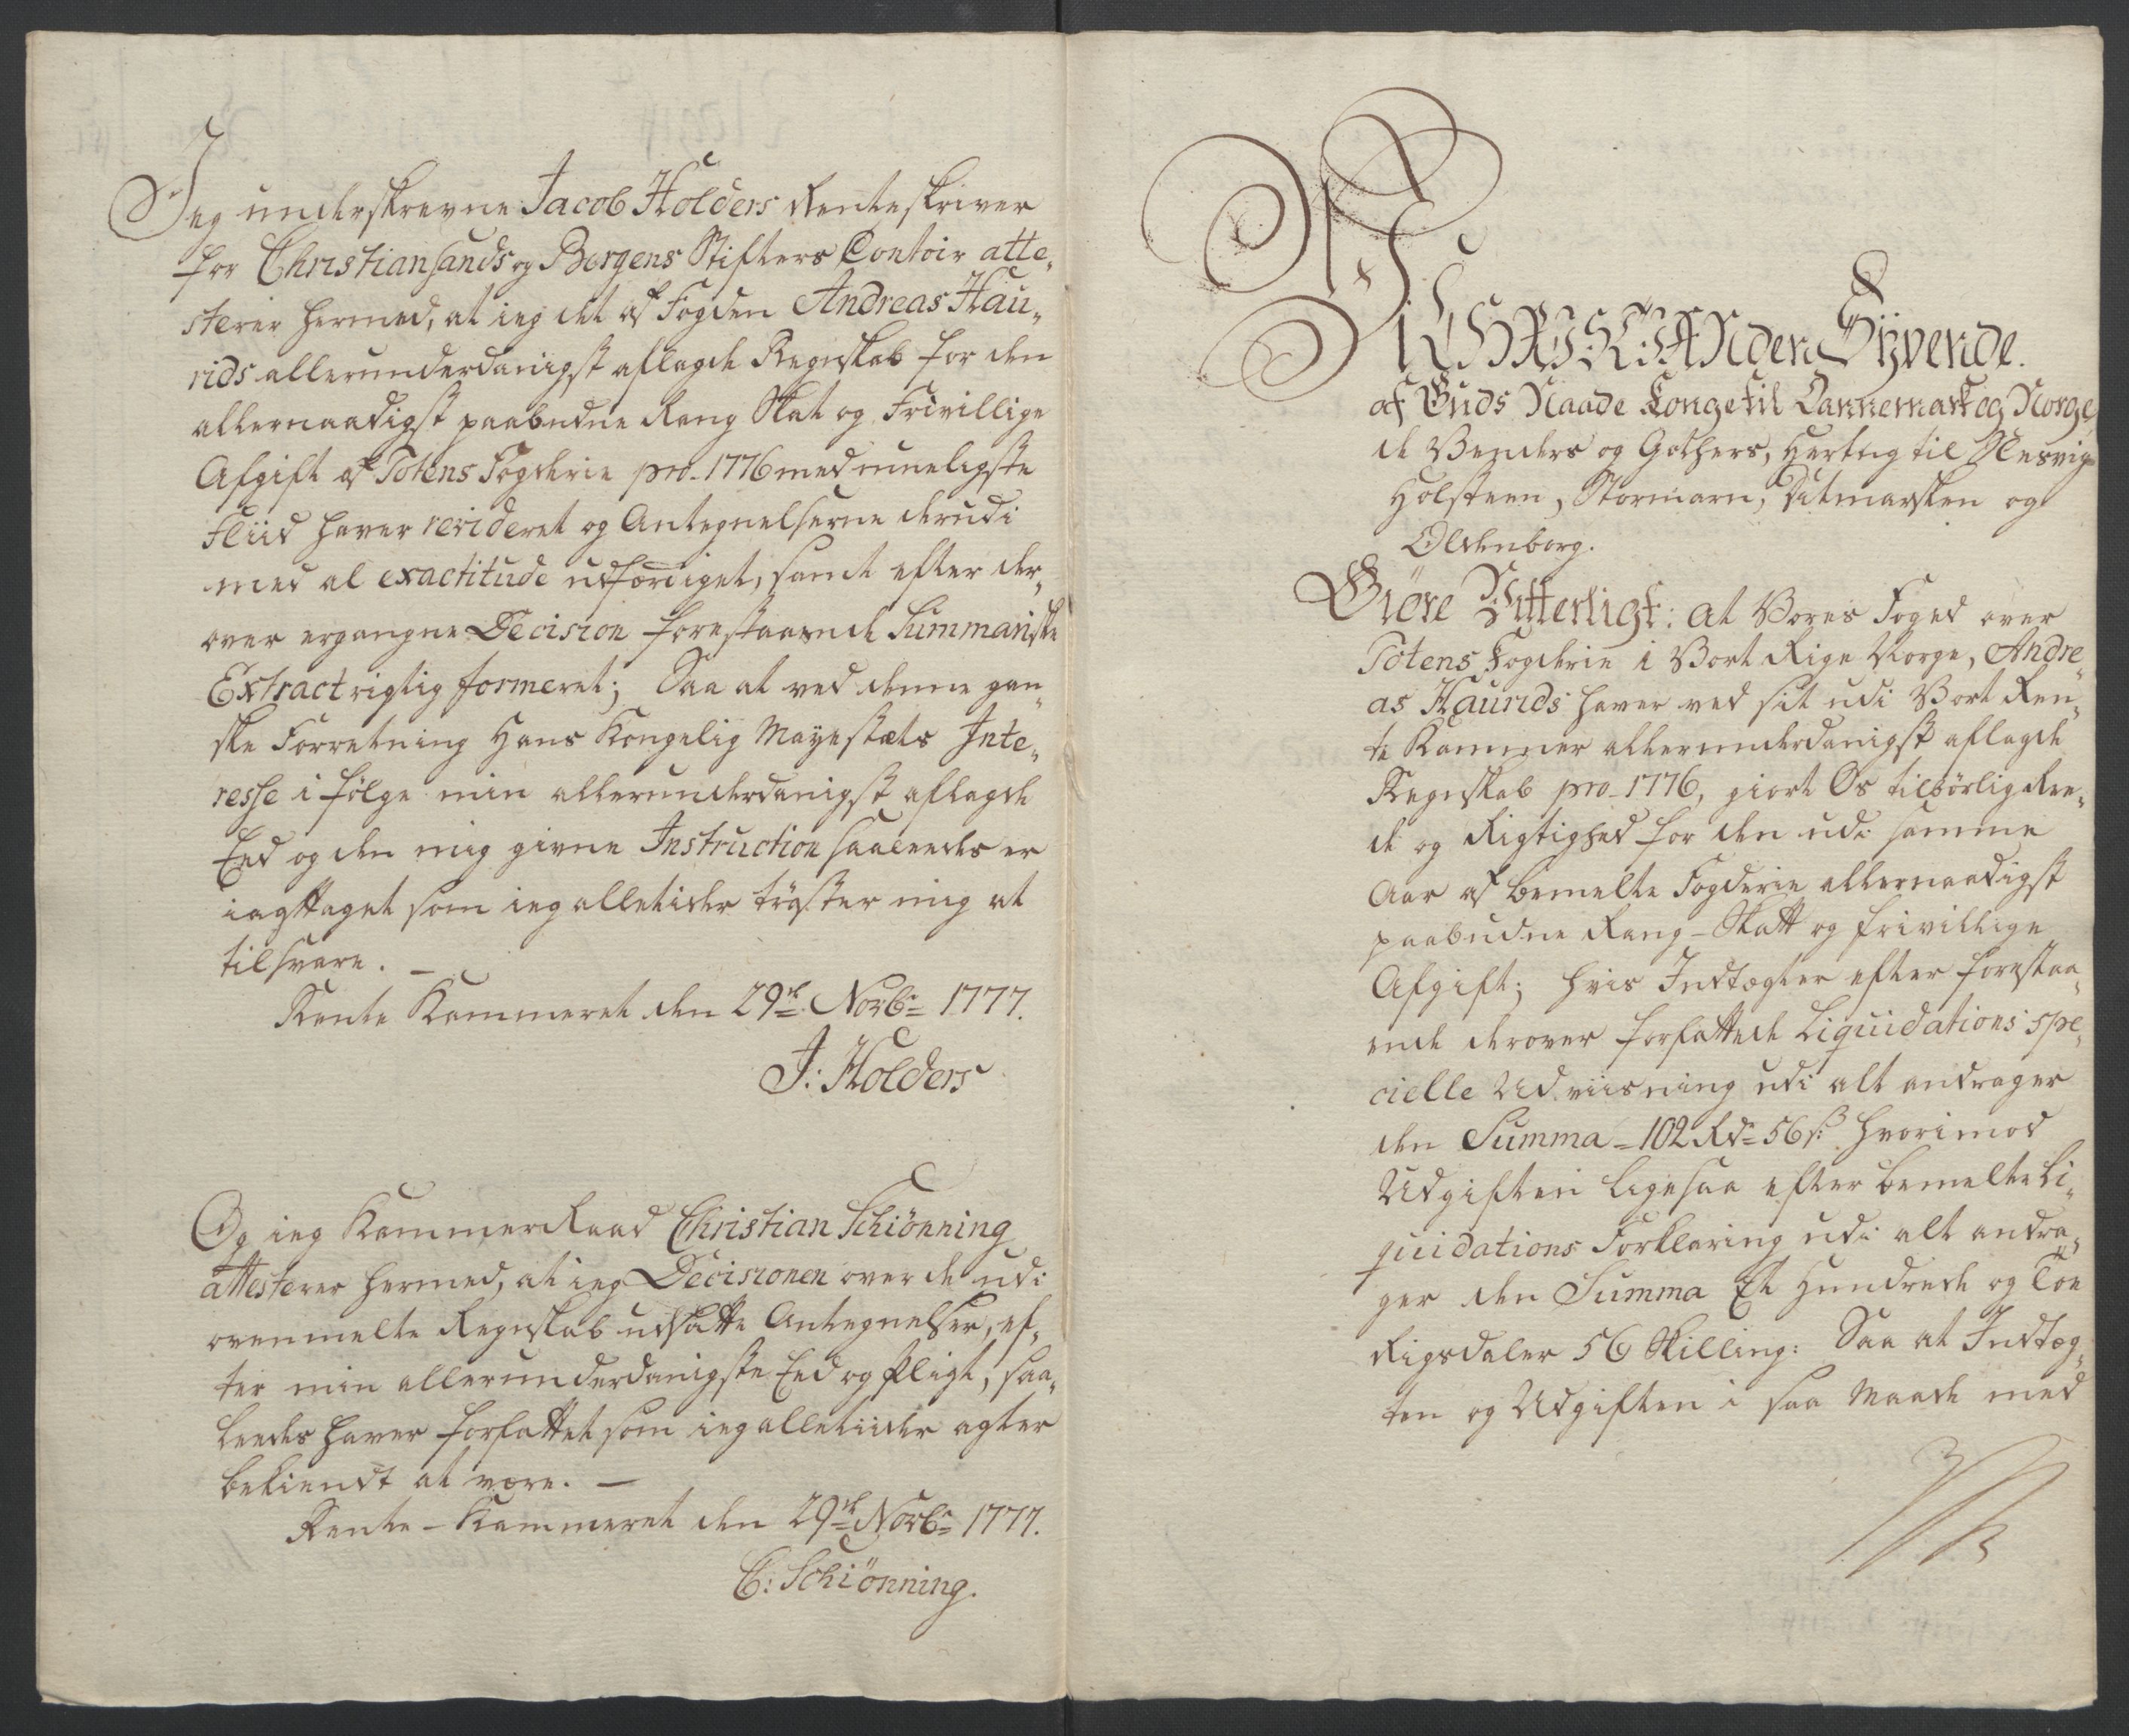 Jeg underskrevne Jacob Holders Renteskriver
for Christiansands og Bergens Stifters Contoir atte,
sterer hermed, at ieg det af Fogden Andreas Hau,
rids allerunderdanigst aflagde Regnskab for den
allernaadigst paabudne Rang Skat og Frivillige
Afgift af Totens Fogderie pro 1776 med mueligste
Fliid haver revideret og Antegnelserne derudi
med al exactitude udfærdiget, samt efter der,
over ergangne Decision forestaaende Summariske
Extract rigtig formeret; Saa at ved denne gan,
ske Forretning Hans Kongelig Mayestæts Inte,
resse i følge min allerunderdanigst aflagde
Eed og den mig givne Instruction saaleedes er
iagttaget som ieg alletider trøster mig at
tilsvare. –
Rente Kammeret den 29de Novbr 1777.
J: Holders
Og ieg KammerRaad Christian Schiönning
attesterer hermed, at ieg Decisionen over de udi
ovenmelte Regnskab udsatte Antegnelser, ef,
ter min allerunderdanigste Eed og Pligt, saa,
leedes haver forfattet som ieg alletiider agter
bekiendt at være. –
Rente-Kammeret den 29de Novbr 1777.
C: Schiönning.
CHRISTIAN den Syvende.
af Guds Naade Konge til Dannemark og Norge
de Venders og Gothers, Hertug til Slesvig
Holsteen, Stormarn, Ditmarsken og
Oldenborg.
Giöre Vitterligt: at Vores Foged over
Totens Fogderie i Vort Rige Norge, Andre,
as Haurids haver ved sit udi Vort Ren,
te Kammer allerunderdanigst aflagde
Regnskab pro 1776, giort Os tilbørlig Ree,
de og Rigtighed for den udi samme
Aar af bemelte Fogderie allernaadigst
paabudne Rang-Skatt og frivillige
Afgift; hvis Indtægter efter forestaa,
ende derover forfattede Liquidations spe,
cielle Udviisning udi alt andrager
den Summa – 102 Rdr 56 s: hvorimod
Udgiften ligesaa efter bemelte Li,
quidations Forklaring udi alt andra,
ger den Summa Et Hundrede og Toe
Rigsdaler 56 Skilling: Saa at Indtæg,
ten og Udgiften i saa Maade med